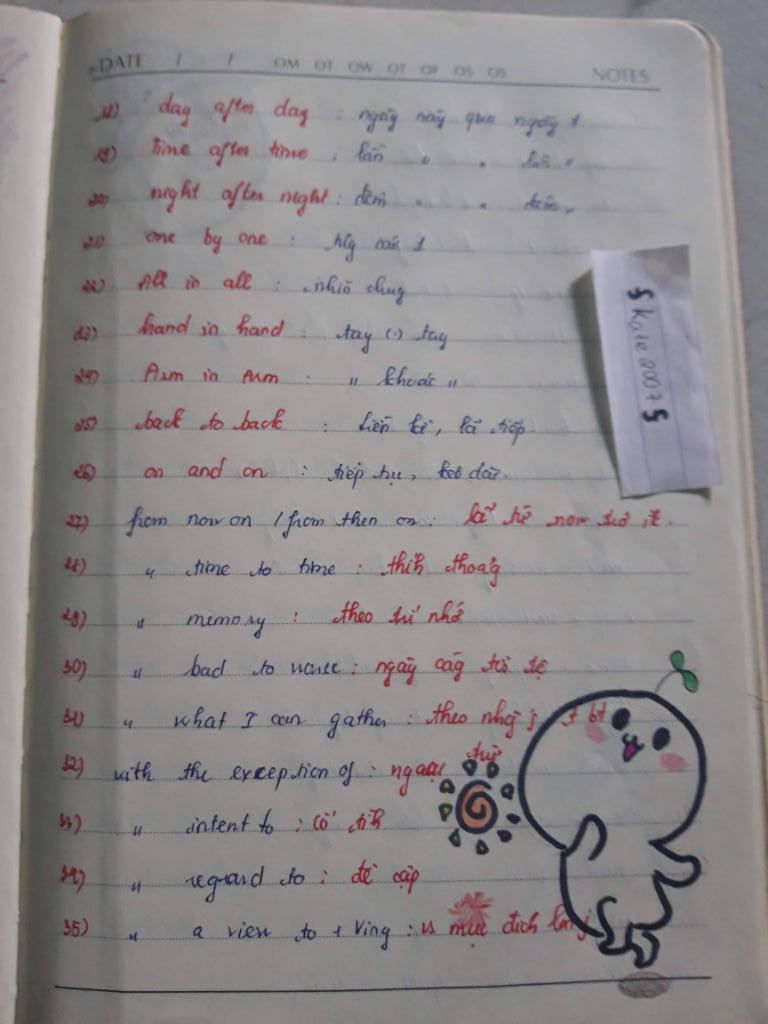 DATE / / OM OT OW OT OF OS OS NOTES
18) day after day : ngày này qua ngày #
19) time after time : lần " " lần "
20) night after night : đêm " " đêm "
21) one by one : từg cái 1
22) All in all : nhìn chug
23) hand in hand : tay (.) tay
24) Arm in Arm : " khoác "
25) back to back : liên kề, liê tiếp
26) on and on : tiếp tục, kéo dài.
27) from now on / from then on : kể từ now trở
28) " time to time : thỉh thoảg
29) " memory : theo trí nhớ
30) " bad to worse : ngày càg tồi tệ
31) " what I can gather : theo nhg j t bt
32) with the exception of : ngoại trừ
33) " intent to : cố tìh
34) " regard to : đề cập
35) " a view to + Ving : vs mục đích làm j
§ kate2007 §